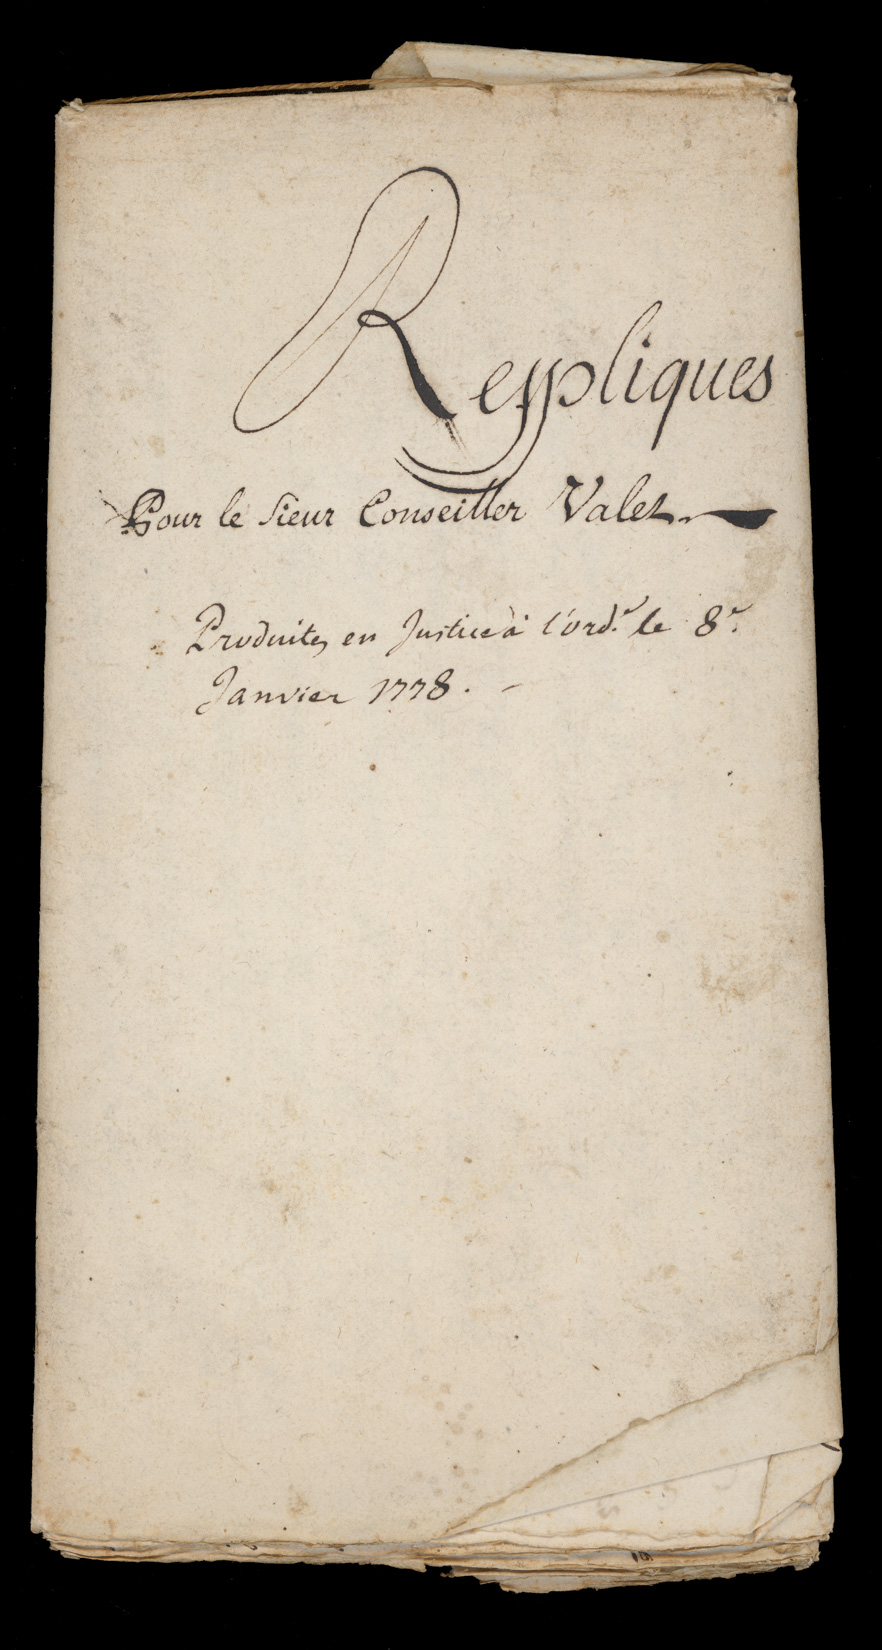 Reppliques
Pour le Sieur Conseiller Valet.
Produites en Justice à l'ord.e le 8.e
Janvier 1778.